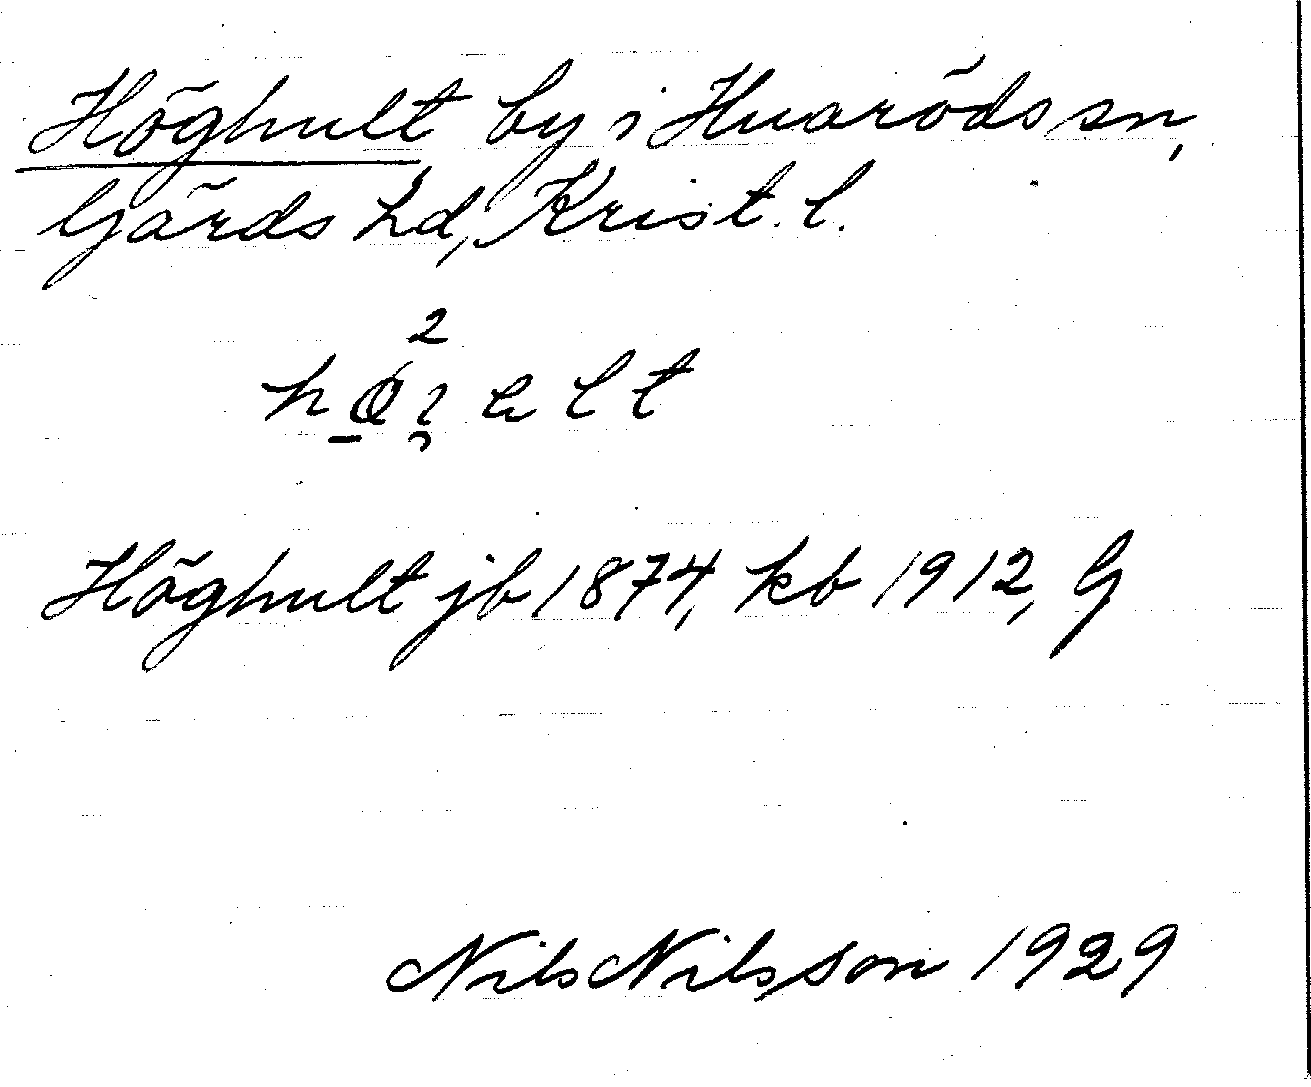 Höghult by i Huaröds sn,
Gärds hd, Krist. l.
2
Höghult jb 1874, kb 1912, G
Nils Nilsson 1929